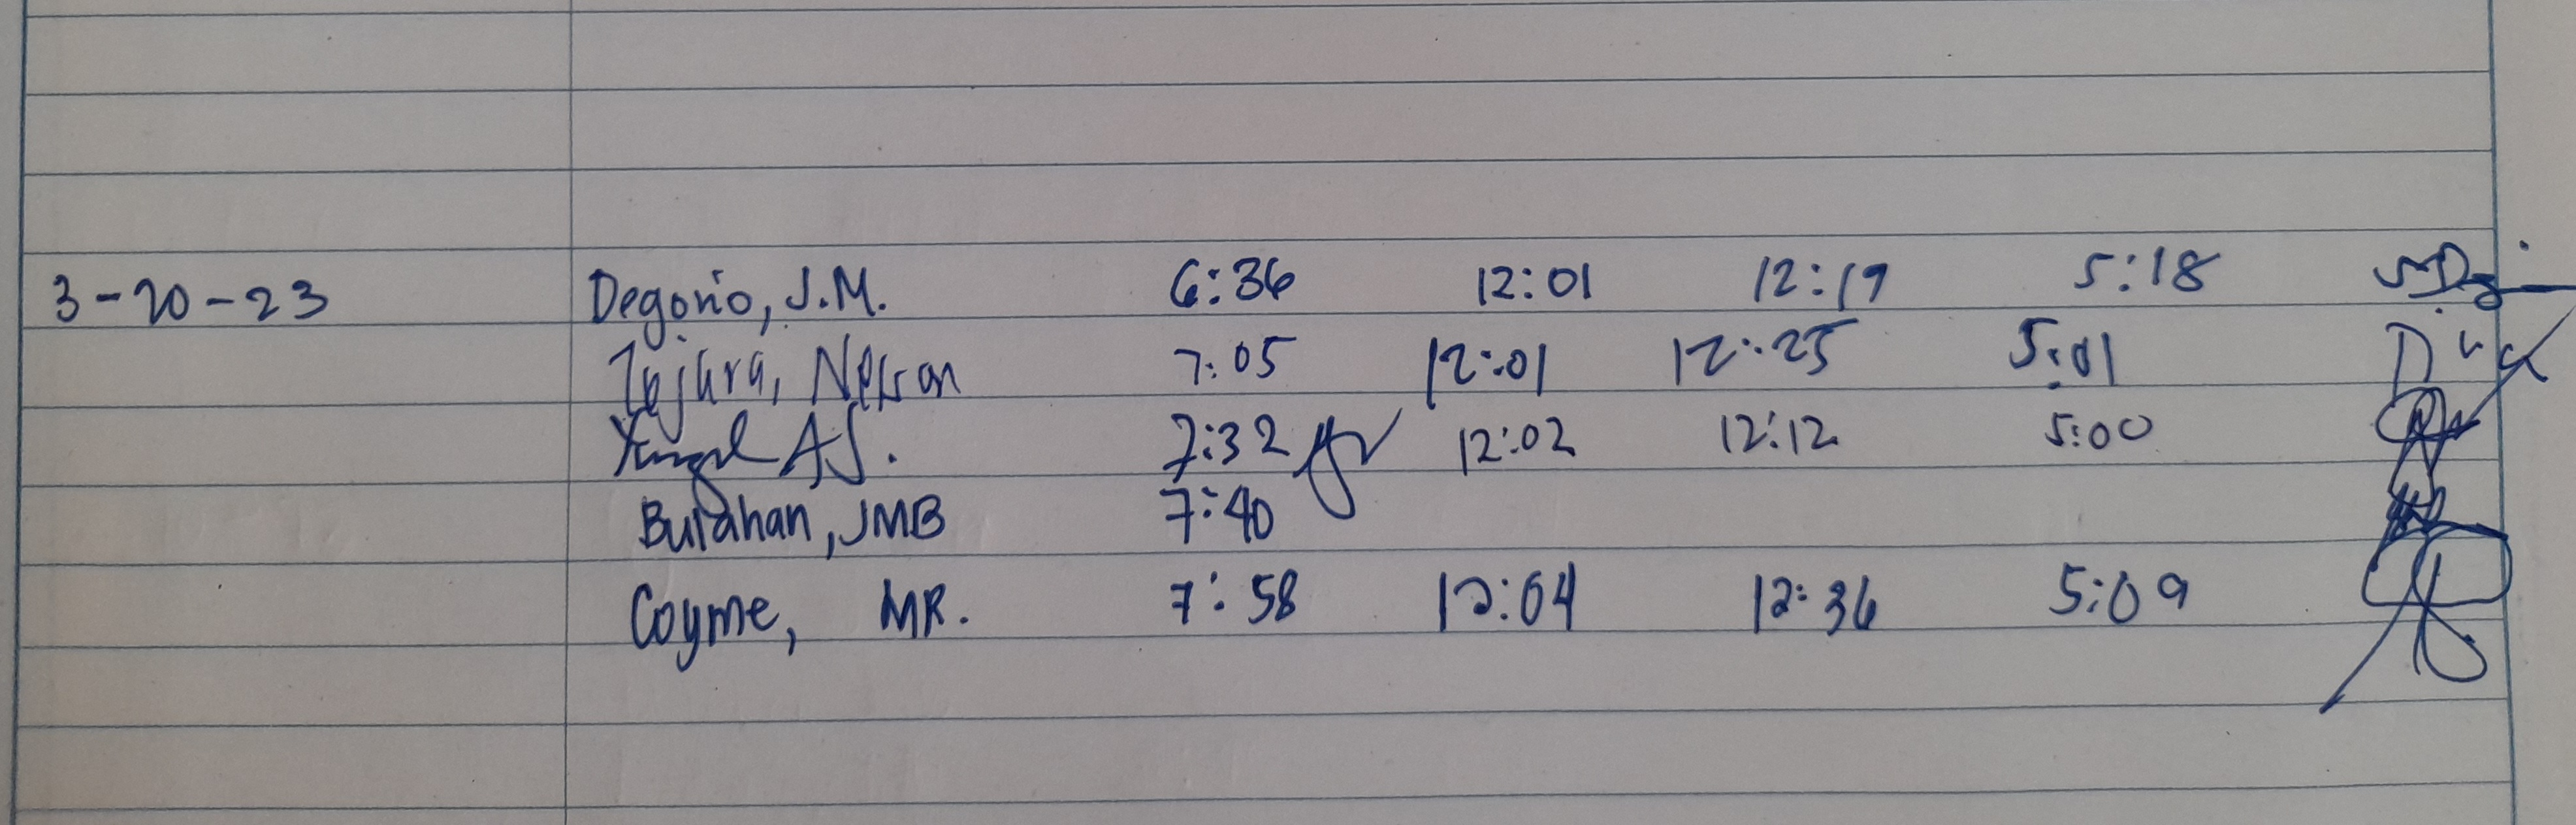 3-20-23 Degorio, J.M. 6:36 12:01 12:19 5:18
Tejara, Nelson 7:05 12:01 12:25 5:01
AJ. 7:32 12:02 12:12 5:00
Bulahan, JMB 7:40
Coyme, MR. 7:58 12:04 12:36 5:09